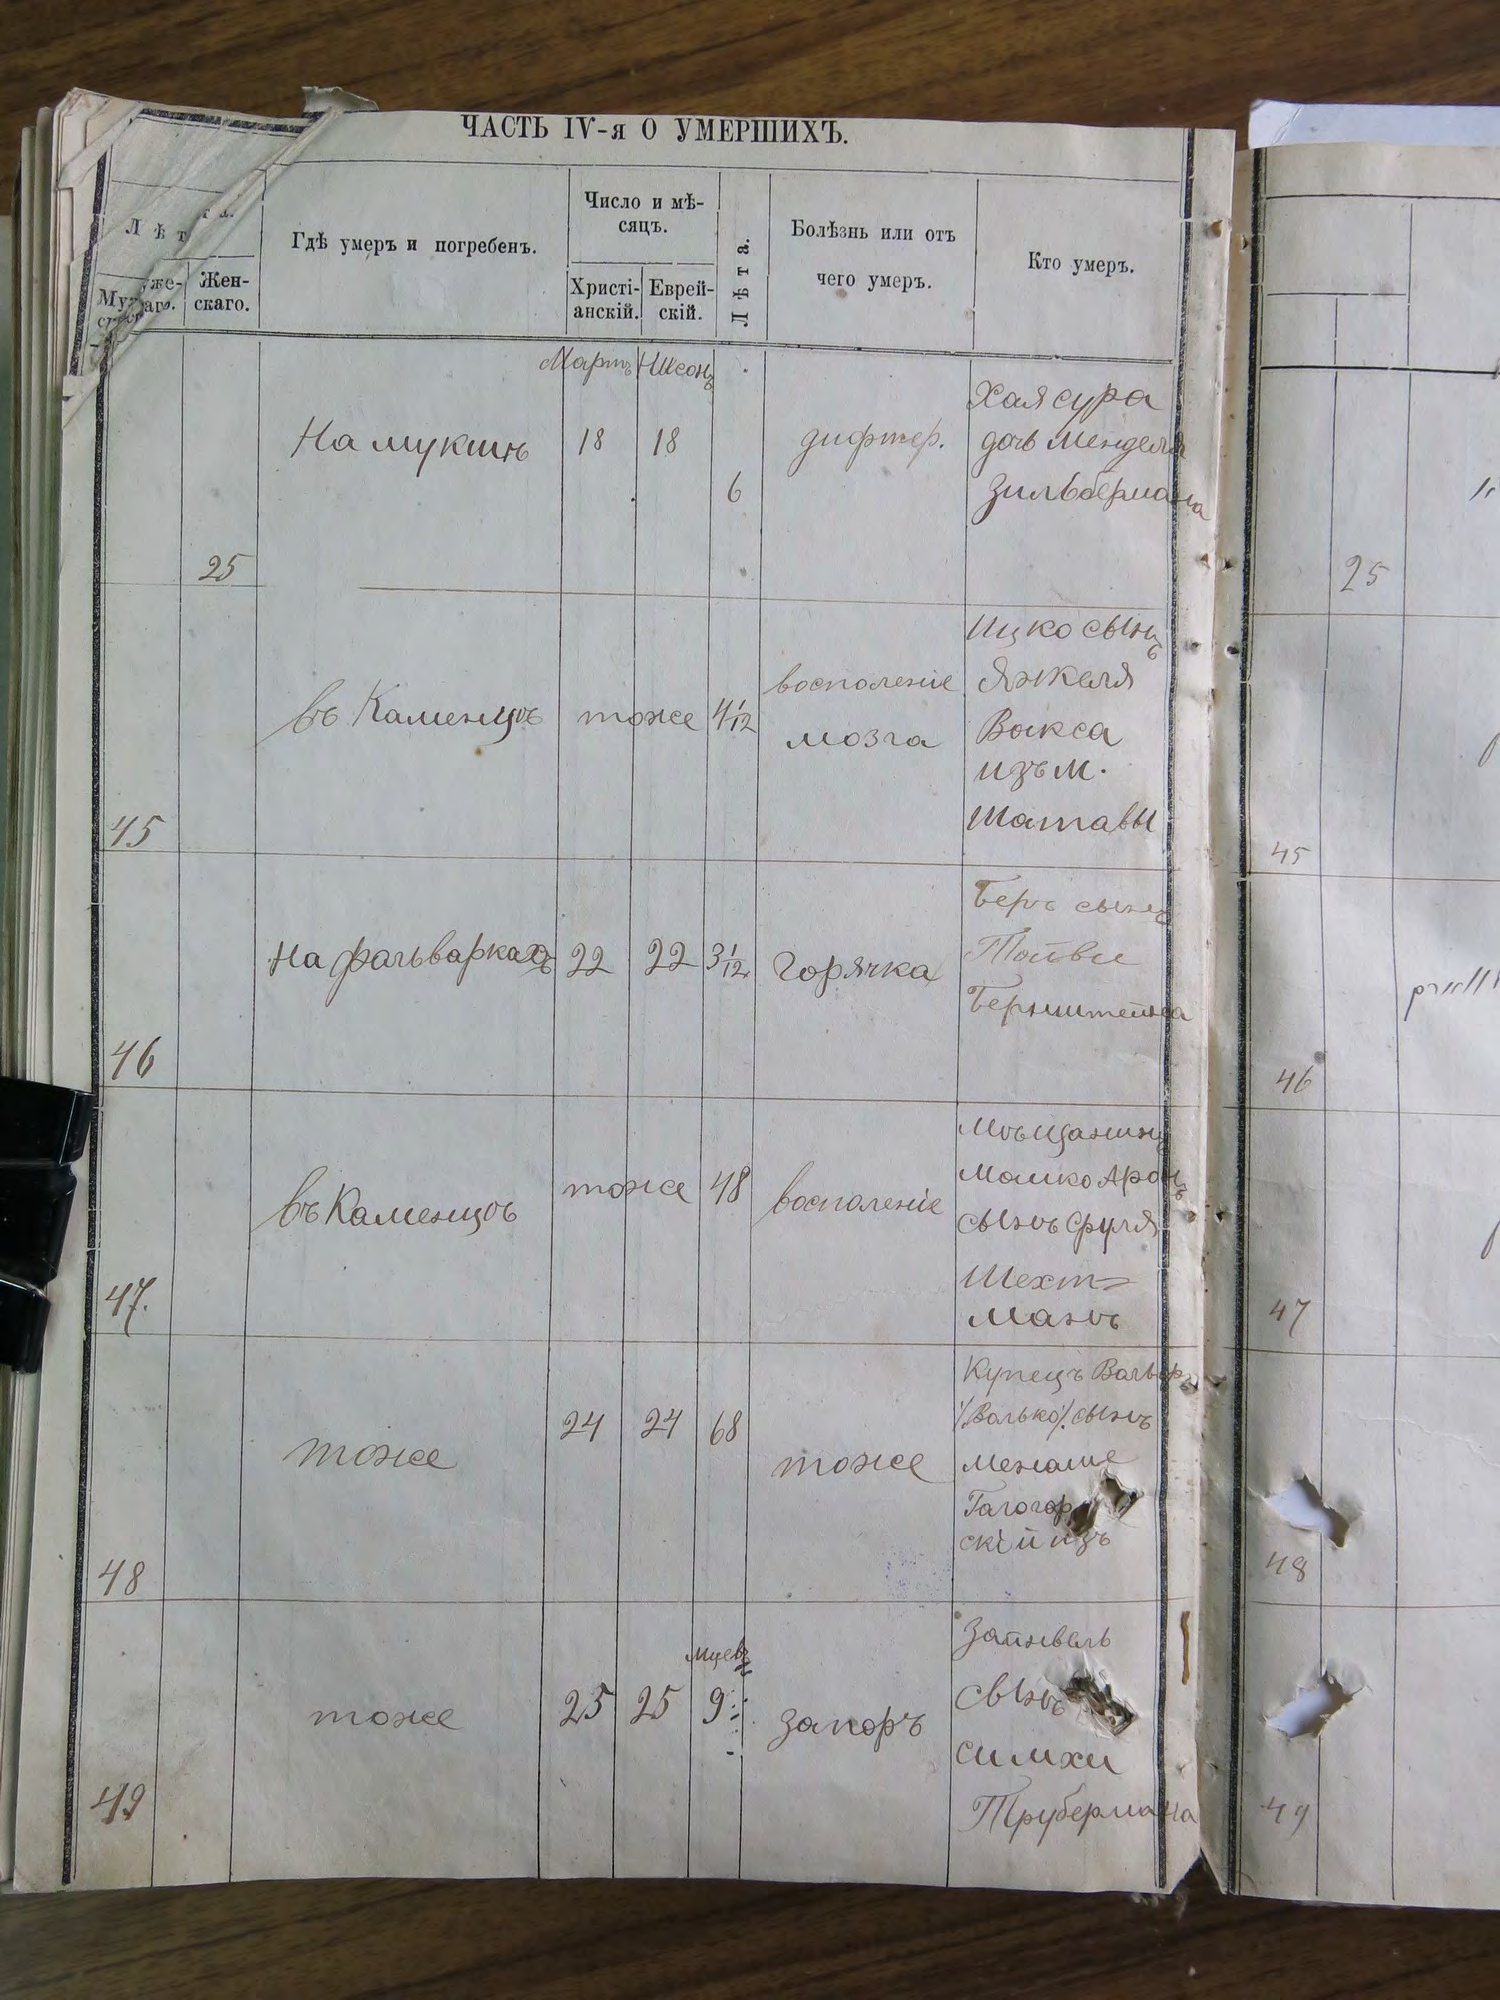 ЧАСТЬ IV-я О УМЕРШИХЪ.
Лѣта.
Мужескаго.
Женскаго.
Гдѣ умеръ и погребенъ.
Число и мѣсяцъ.
Христіанскій.
Еврейскій.
Лѣта.
Болѣзнь или отъ чего умеръ.
Кто умеръ.
Мартъ
18 18
6
дифтер.
Хая сура
дочь Менделя
Зильбермана
25
въ Каменцѣ
тоже
4 1/12
восполеніе
мозга
Ицко сынъ
Янкеля
Вакса
изъ м.
Шатавы
45
На фальваркахъ
22 22
3 1/12
Горячка
Беръ сынъ
Бернштейна
46
въ Каменцѣ
тоже
48
восполеніе
Мѣщанинъ
Мошко Аронъ
сынъ Сруля
Шехт=
манъ
47.
тоже
24 24
68
тоже
Купецъ
/Волько/. сынъ
Менаше
скій изъ
48
тоже
25 25
9
запоръ
Зайнвель
сынъ
Симхи
Трубермана
49
25
45
46
47
48
49